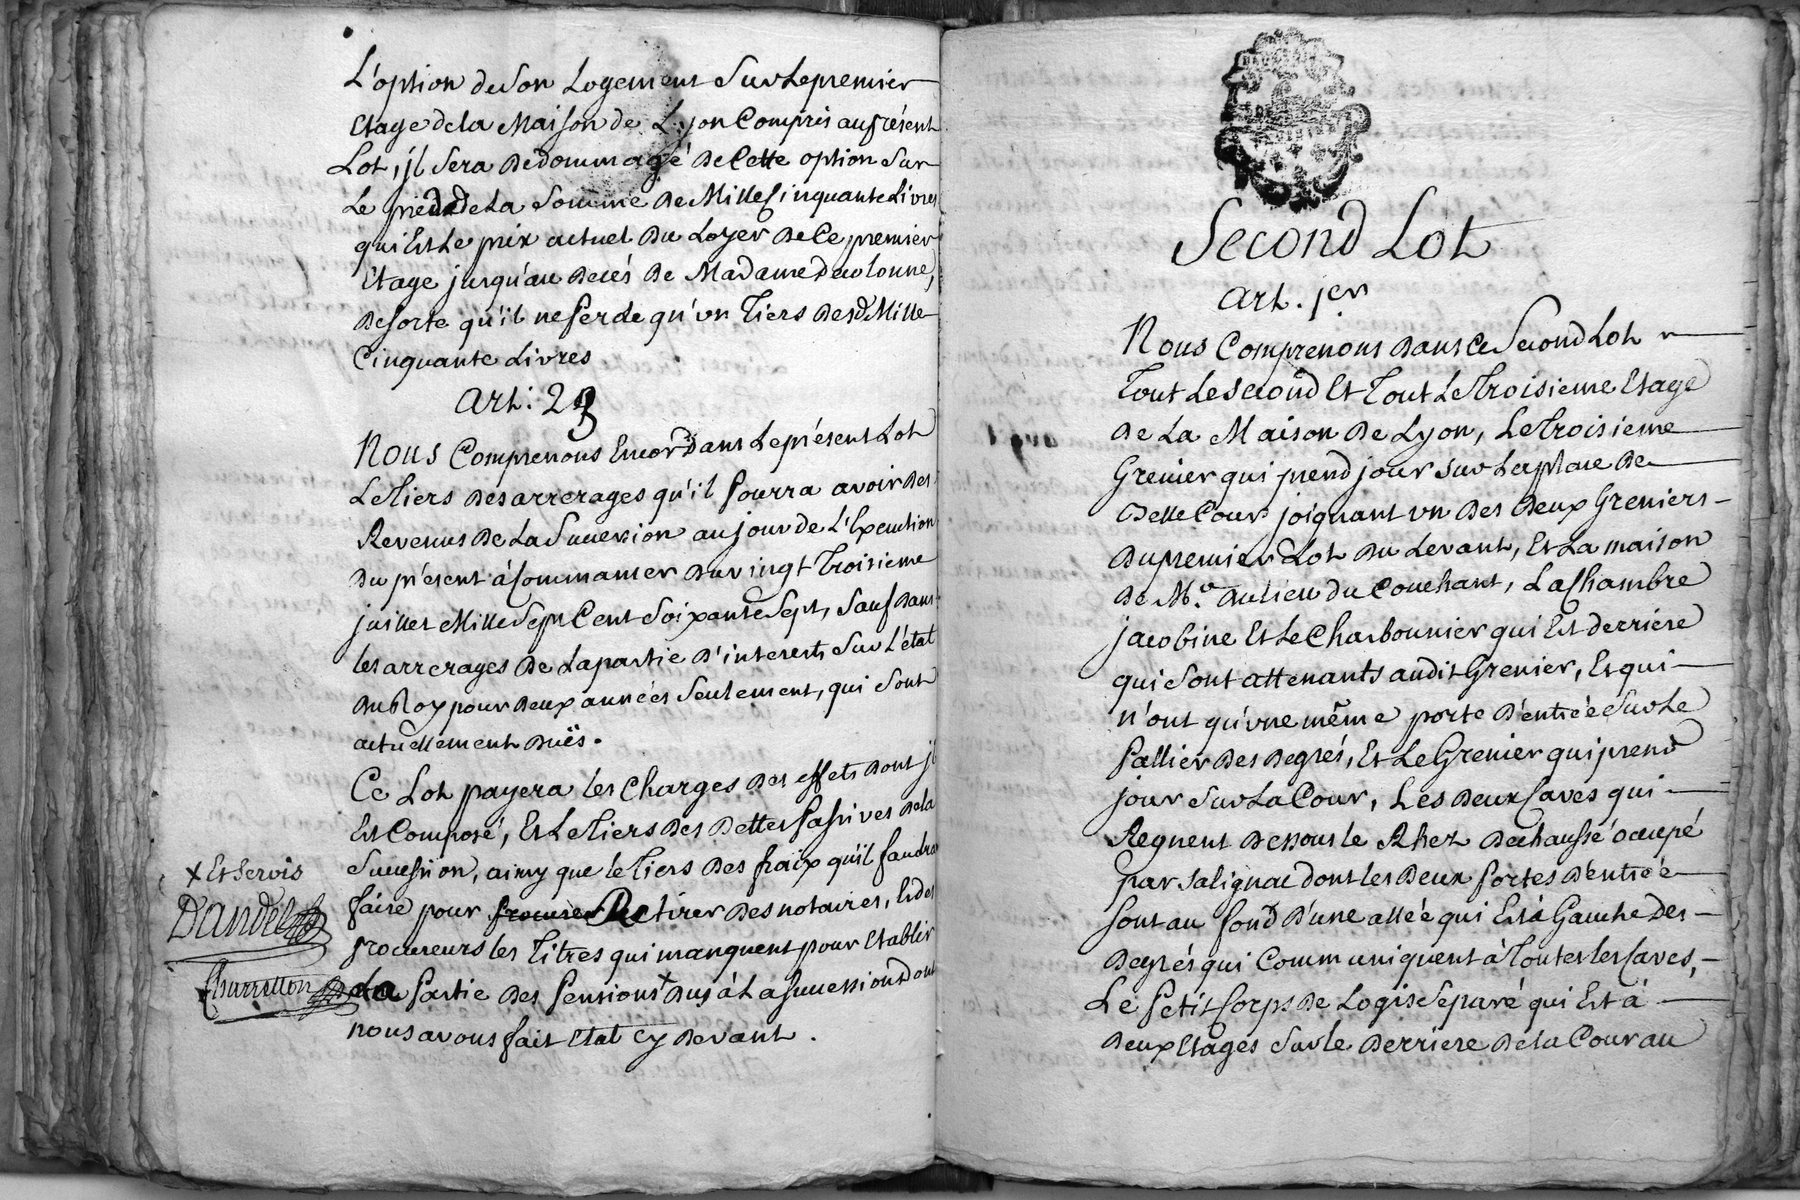 L'option de Son Logement Sur Le premier
Etage de la Maison de Lyon Compris au present
Lot, il Sera Dedommagé De Cette option Sur
Le pied de La Somme De Mille Cinquante Livres
qui Est Le prix actuel Du Loyer De Ce premier
Etage jusqu'au Decés De Madame Decolonne,
De Sorte qu'il ne perde qu'un Tiers Desd. Mille
Cinquante Livres
Art: 23
Nous Comprenons Encor Dans Le présent Lot
Le Tiers Des arrerages qu'il pourra avoir Des
Revenus De La Succession au jour de L'Execution
Du présent à Commancer Du vingt Troisieme
juillet Mille Sept Cent Soixante Sept, Sauf Dans
les arrerages De La partie D'interests Sur L'état
Du Roy pour Deux années Seulement, qui Sont
actuellement Duës.
Ce Lot payera les Charges Des effets Dont il
Est Composé, Et Le Tiers Des Dettes passives De la
Succession, ainsy que le Tiers Des fraix qu'il faudra
faire pour procurer Retirer Des notaires, Et des
procureurs les Titres qui manquent pour Etablir
la partie Des Pensions x Dus à La Succession Dont
nous avons fait Etat Cy Devant.
x Et Servis
D'andel
Charretton
Second Lot
Art. 1er
Nous Comprenons Dans Ce Second Lot
Tout Le Second Et Tout Le Troisieme Etage
De La Maison De Lyon, Le Troisieme
Grenier qui prend jour Sur La place De
Belle Cour joignant un Des Deux Greniers
Du premier Lot Du Levant, Et La maison
De Mr. Aulieu du Couchant, La Chambre
jacobine Et Le Charbonnier qui Est derriére
qui Sont attenants audit Grenier, Et qui
n'ont qu'une même porte D'entrée Sur Le
pallier Des Degrés, Et Le Grenier qui prend
jour Sur La Cour, Les Deux Caves qui
Regnent Dessous le Rhez De chaussé occupé
par Salignac dont les Deux portes D'entrée
Sont au fond D'une allée qui Est à Gauche Des
Degrés qui Communiquent à Toutes les Caves,
Le petit Corps De Logis Separé qui Est à
Deux Etages Sur le Derriere De la Cour au